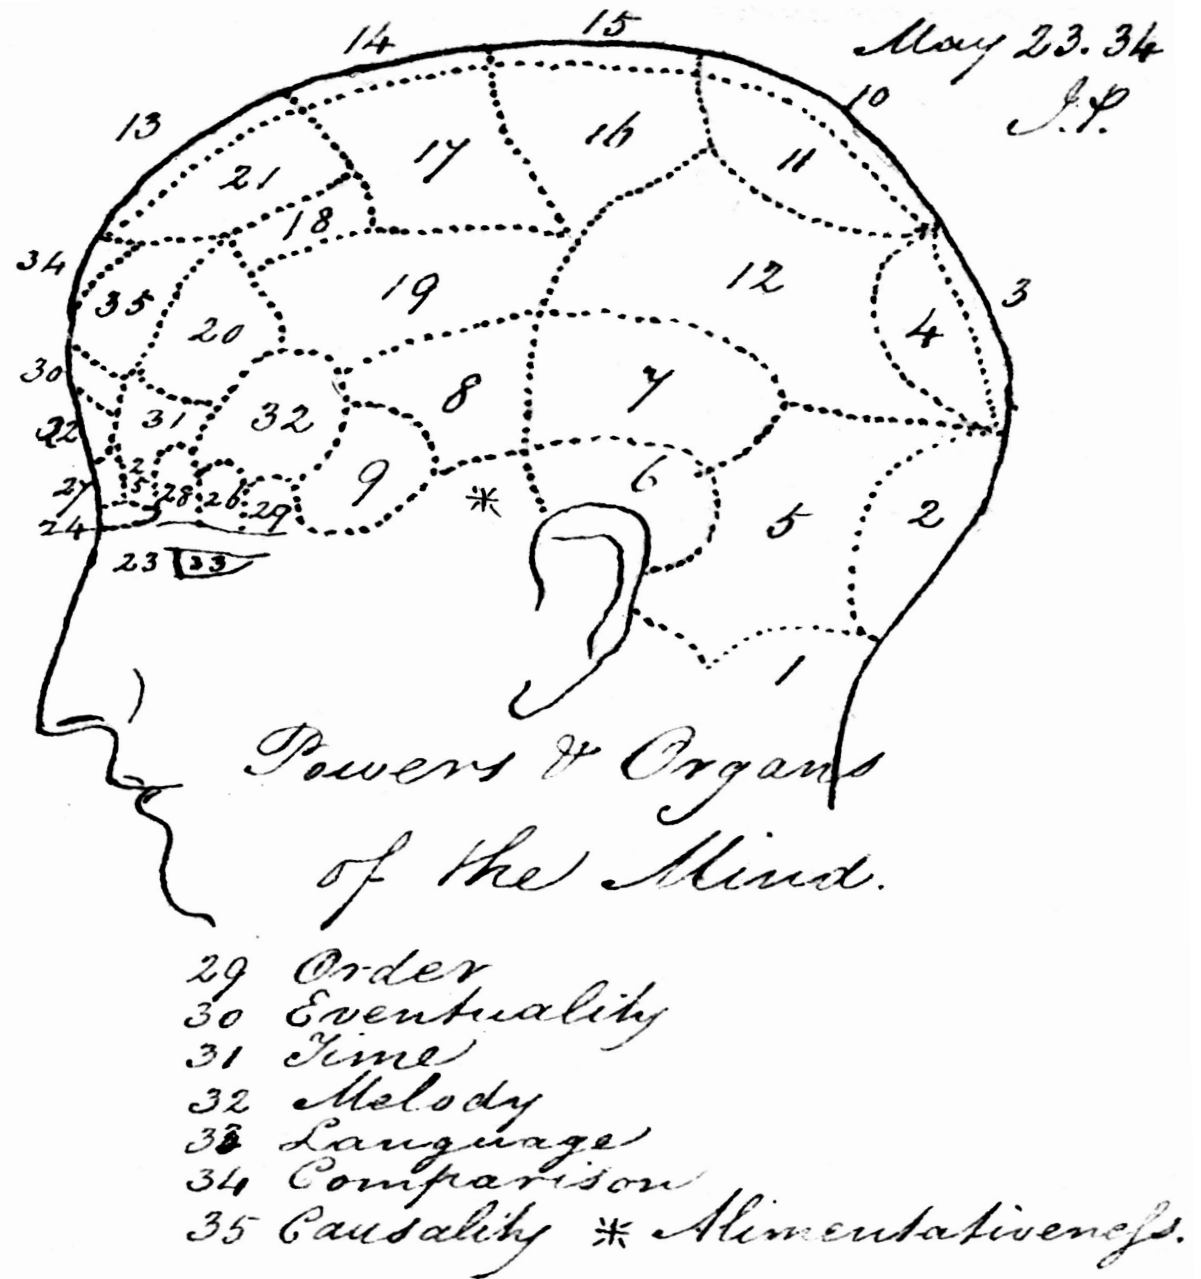 14
15
May 23. 34
10
J.P.
13
16
17
11
21
18
34
35
19
12
3
20
4
30
8
7
31
32
22
9
6
2
5
27
28
26
29
5
2
24
23
33
1
Powers & Organs
of the Mind.
29 Order
30 Eventuality
31 Time
32 Melody
33 Language
34 Comparison
35 Causality * Alimentativeneſs.